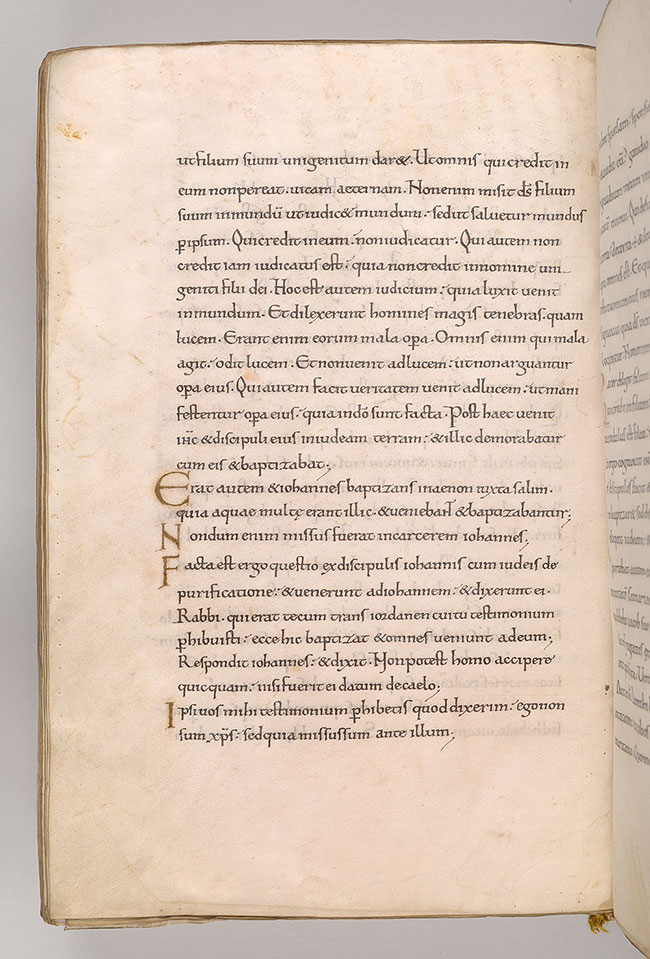 ut filium suum unigenitum dar&. Ut omnis qui credit in
eum non pereat. vitam aeternam. Non enim misit d̄s filium
suum in mundū ut iudic& mundum. sed ut salvetur mundus
p̄ ipsum. Qui credit in eum. non iudicatur. Qui autem non
credit iam iudicatus est. quia non credit in nomine uni
geniti filii dei. Hoc est autem iudicium. quia lux it venit
in mundum. Et dilexerunt homines magis tenebras. quam
lucem. Erant enim eorum mala op̄a. Omnis enim qui mala
agit. odit lucem. Et non venit ad lucem. ut non arguantur
op̄a eius. Qui autem facit veritatem venit ad lucem. ut mani
festentur op̄a eius. quia in dō sunt facta. Post haec venit
ih̄c & discipuli eius in iudeam terram. & illic demorabatur
cum eis & baptizabat;
Erat autem & iohannes baptizans in aenon iuxta salim.
quia aquae multę erant illic. & veniebant & baptizabantur;
Nondum enim missus fuerat in carcerem iohannes;
Facta est ergo questio ex discipulis iohannis cum iudeis de
purificatione. & venerunt ad iohannem. & dixerunt ei.
Rabbi. qui erat tecum trans iordanen cui tu testimonium
p̄hibuisti. ecce hic baptizat & omnes veniunt ad eum;
Respondit iohannes. & dixit. Non potest homo accipere
quicquam. nisi fuerit ei datum de caelo;
Ipsi vos mihi testimonium p̄hibetis quod dixerim. ego non
sum xp̄s. sed quia missus sum ante illum;